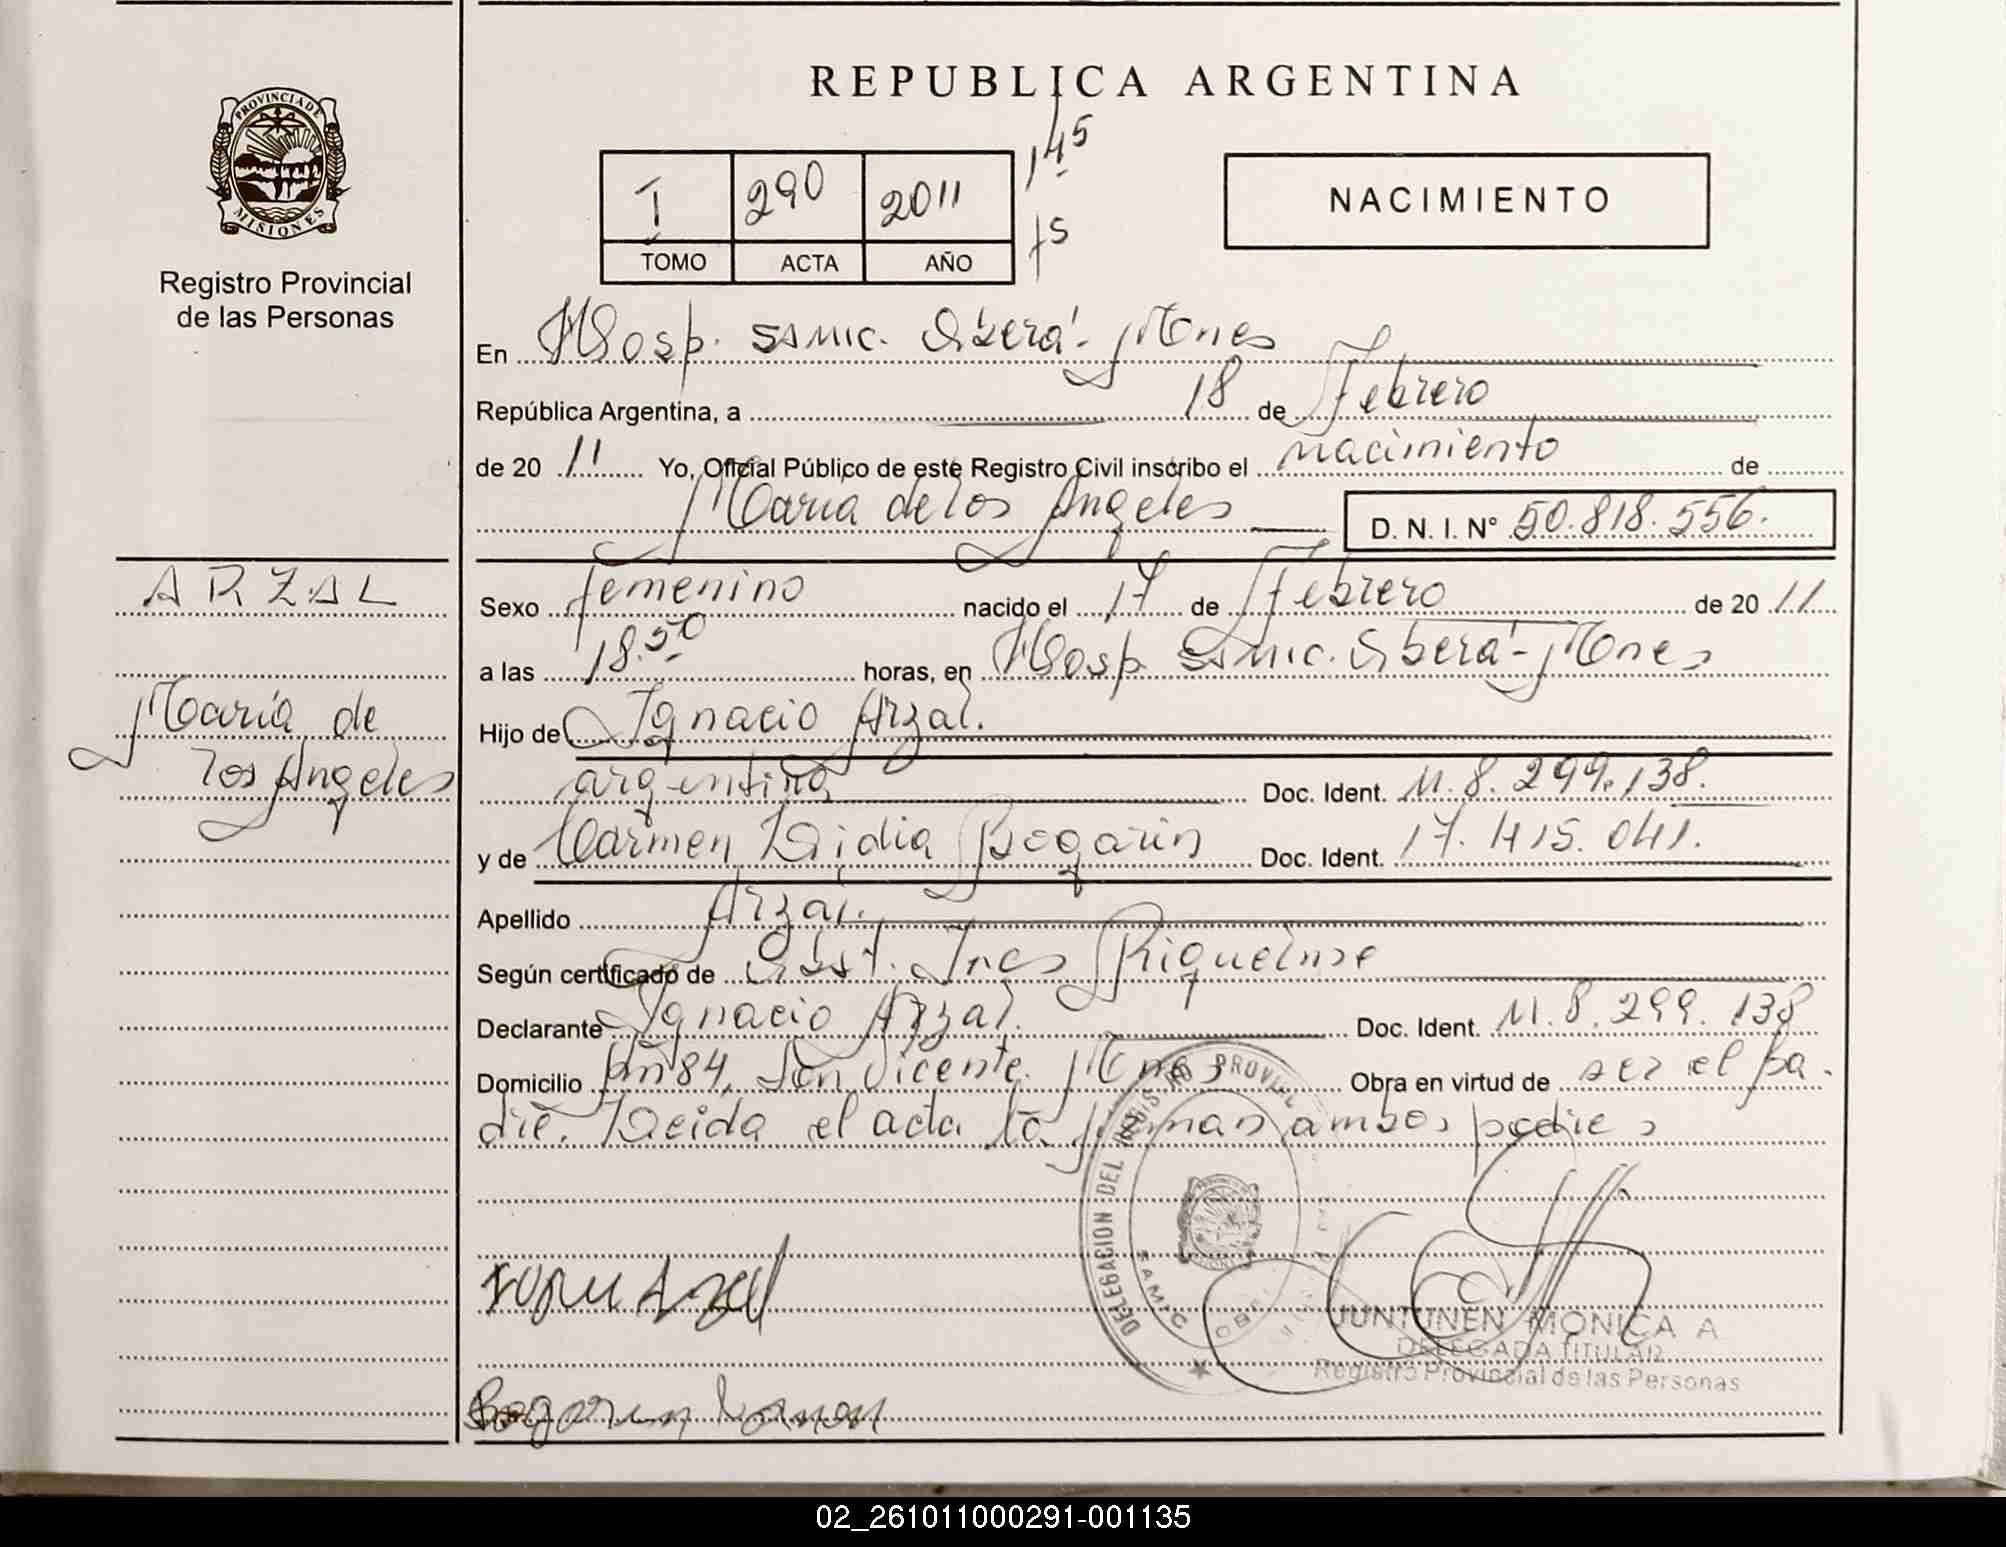 REPUBLICA ARGENTINA
PROVINCIA DE
MISIONES
Registro Provincial
de las Personas
I 290 2011 145
TOMO ACTA AÑO
NACIMIENTO
En Hosp. SAMIC. Oberá - Mnes
República Argentina, a 18 de Febrero
de 20 11 Yo, Oficial Público de este Registro Civil inscribo el nacimiento de
María de los Angeles D. N. I. N° 50.818.556.
ARZAL
María de
los Angeles
Sexo femenino nacido el 17 de Febrero de 20 11
a las 18.50 horas, en Hosp. SAMIC. Oberá - Mnes
Hijo de Ignacio Arzal.
argentino Doc. Ident. M. 8. 299. 138.
y de Carmen Lidia Bogarin Doc. Ident. 17. 415. 041.
Apellido Arzal.
Según certificado de Obst. Ines Riquelme
Declarante Ignacio Arzal. Doc. Ident. M. 8. 299. 138
Domicilio 84, San Vicente. Mnes Obra en virtud de ser el pa-
dre. Leida el acta la firman ambos padres
DELEGACION DEL REGISTRO PROVINCIAL
SAMIC OBERA
Arzal
Bogarin
JUNTUNEN MONICA A
DELEGADA TITULAR
Registro Provincial de las Personas
02_261011000291-001135